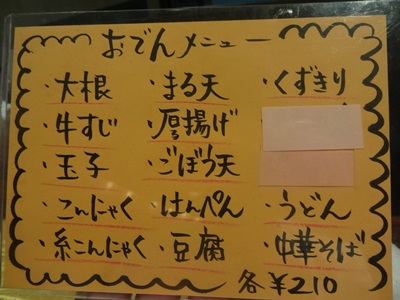 おでんメニュー
・大根 ・まる天 ・くずきり
・牛すじ ・厚揚げ
・玉子 ・ごぼう天
・こんにゃく ・はんぺん ・うどん
・糸こんにゃく ・豆腐 ・中華そば
各¥210